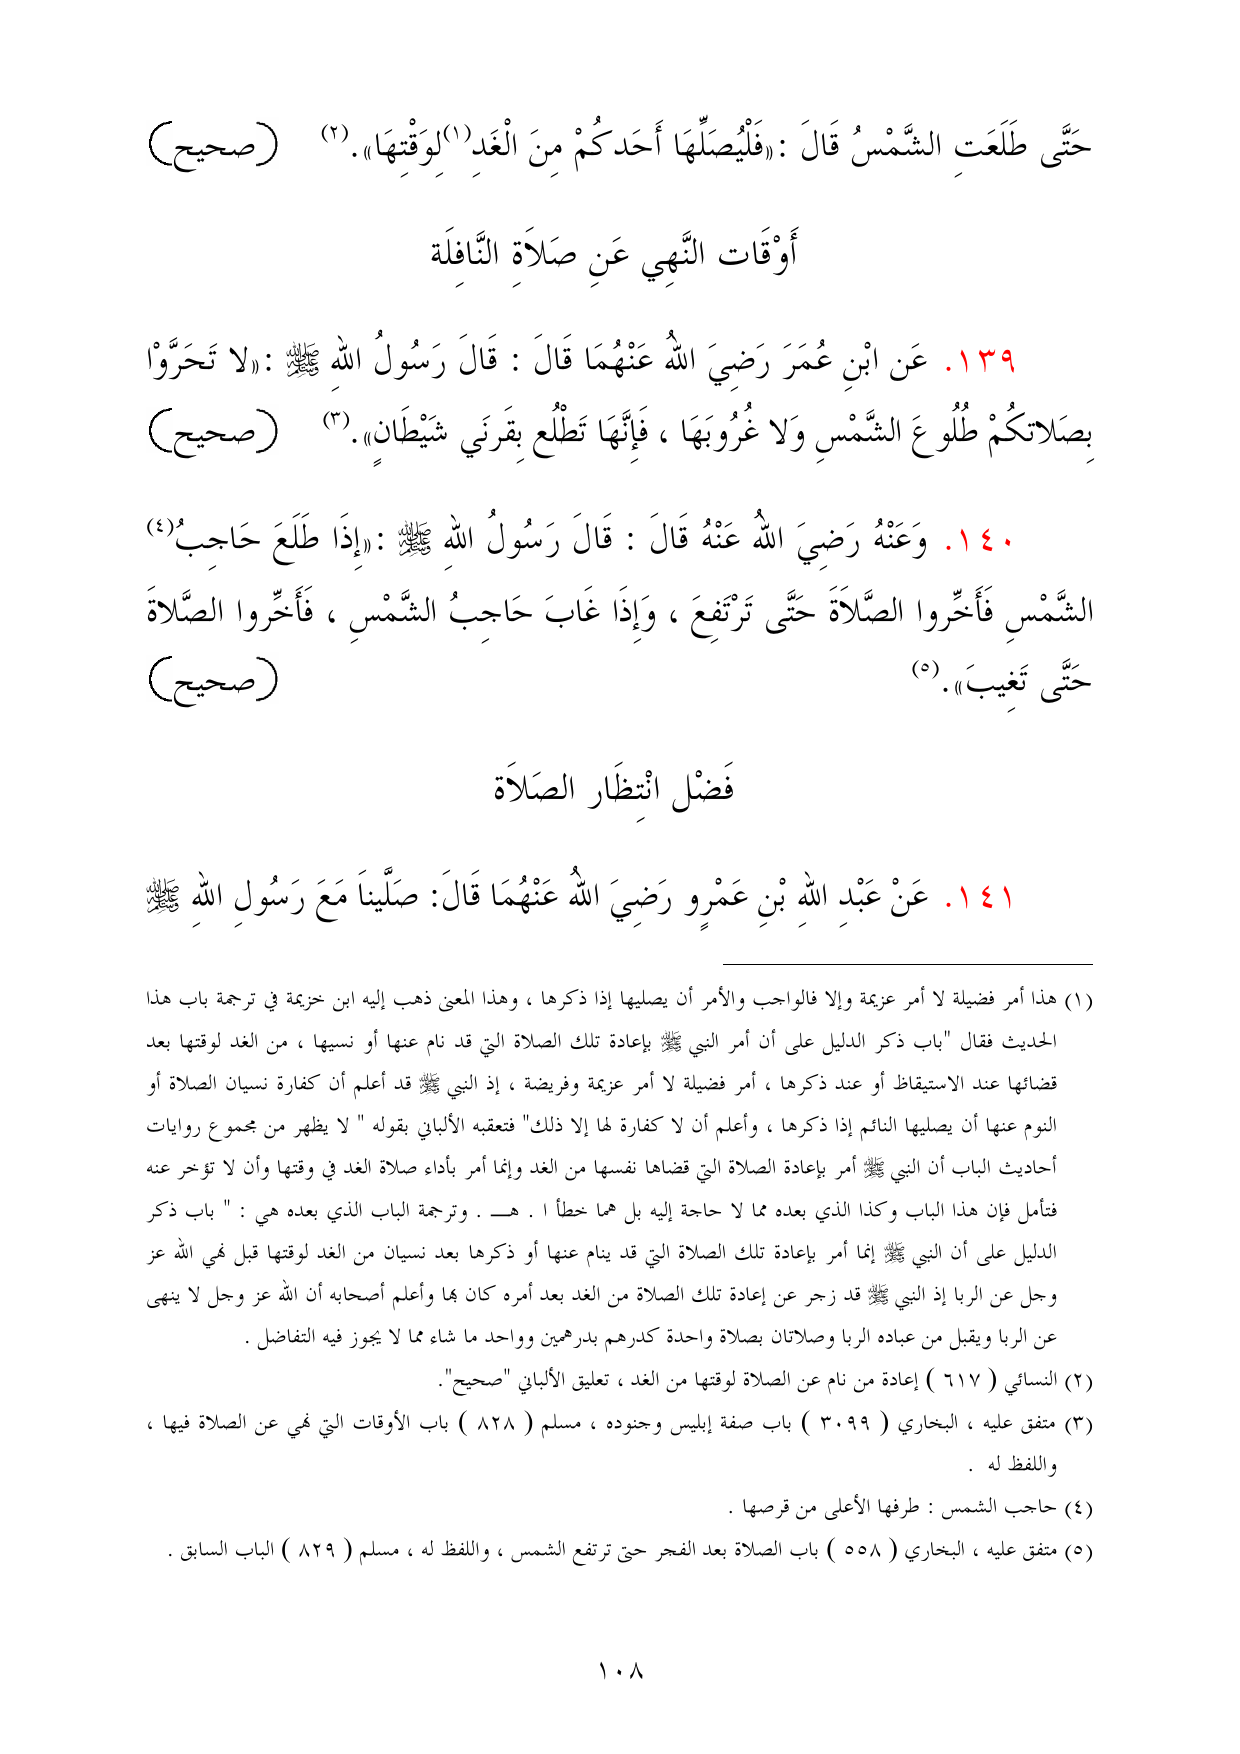 حَتَّى طَلَعَتِ الشَّمْسُ قَالَ :«فَلْيُصَلِّهَا أَحَدكُمْ مِنَ الْغَدِ(١)لِوَقْتِهَا».(٢) (صحيح)
أَوْقَات النَّهِي عَنِ صَلاَةِ النَّافِلَة
١٣٩. عَن ابْنِ عُمَرَ رَضِيَ اللهُ عَنْهُمَا قَالَ : قَالَ رَسُولُ اللهِ ﷺ :«لا تَحَرَّوْا
بِصَلاتكُمْ طُلُوعَ الشَّمْسِ وَلا غُرُوبَهَا ، فَإِنَّهَا تَطْلُع بِقَرنَي شَيْطَانٍ».(٣) (صحيح)
١٤٠. وَعَنْهُ رَضِيَ اللهُ عَنْهُ قَالَ : قَالَ رَسُولُ اللهِ ﷺ :«إِذَا طَلَعَ حَاجِبُ(٤)
الشَّمْسِ فَأَخِّروا الصَّلاَةَ حَتَّى تَرْتَفِعَ ، وَإِذَا غَابَ حَاجِبُ الشَّمْسِ ، فَأَخِّروا الصَّلاةَ
حَتَّى تَغِيبَ».(٥) (صحيح)
فَضْل انْتِظَار الصَلاَة
١٤١. عَنْ عَبْدِ اللهِ بْنِ عَمْرٍو رَضِيَ اللهُ عَنْهُمَا قَالَ: صَلَّيناَ مَعَ رَسُولِ اللهِ ﷺ
(١) هذا أمر فضيلة لا أمر عزيمة وإلا فالواجب والأمر أن يصليها إذا ذكرها ، وهذا المعنى ذهب إليه ابن خزيمة في ترجمة باب هذا
الحديث فقال "باب ذكر الدليل على أن أمر النبي ﷺ بإعادة تلك الصلاة التي قد نام عنها أو نسيها ، من الغد لوقتها بعد
قضائها عند الاستيقاظ أو عند ذكرها ، أمر فضيلة لا أمر عزيمة وفريضة ، إذ النبي ﷺ قد أعلم أن كفارة نسيان الصلاة أو
النوم عنها أن يصليها النائم إذا ذكرها ، وأعلم أن لا كفارة لها إلا ذلك" فتعقبه الألباني بقوله " لا يظهر من مجموع روايات
أحاديث الباب أن النبي ﷺ أمر بإعادة الصلاة التي قضاها نفسها من الغد وإنما أمر بأداء صلاة الغد في وقتها وأن لا تؤخر عنه
فتأمل فإن هذا الباب وكذا الذي بعده مما لا حاجة إليه بل هما خطأ ا . هـــ . وترجمة الباب الذي بعده هي : " باب ذكر
الدليل على أن النبي ﷺ إنما أمر بإعادة تلك الصلاة التي قد ينام عنها أو ذكرها بعد نسيان من الغد لوقتها قبل نهي الله عز
وجل عن الربا إذ النبي ﷺ قد زجر عن إعادة تلك الصلاة من الغد بعد أمره كان بها وأعلم أصحابه أن الله عز وجل لا ينهى
عن الربا ويقبل من عباده الربا وصلاتان بصلاة واحدة كدرهم بدرهمين وواحد ما شاء مما لا يجوز فيه التفاضل .
(٢) النسائي ( ٦١٧ ) إعادة من نام عن الصلاة لوقتها من الغد ، تعليق الألباني "صحيح".
(٣) متفق عليه ، البخاري ( ٣٠٩٩ ) باب صفة إبليس وجنوده ، مسلم ( ٨٢٨ ) باب الأوقات التي نهي عن الصلاة فيها ،
واللفظ له .
(٤) حاجب الشمس : طرفها الأعلى من قرصها .
(٥) متفق عليه ، البخاري ( ٥٥٨ ) باب الصلاة بعد الفجر حتى ترتفع الشمس ، واللفظ له ، مسلم ( ٨٢٩ ) الباب السابق .
١٠٨